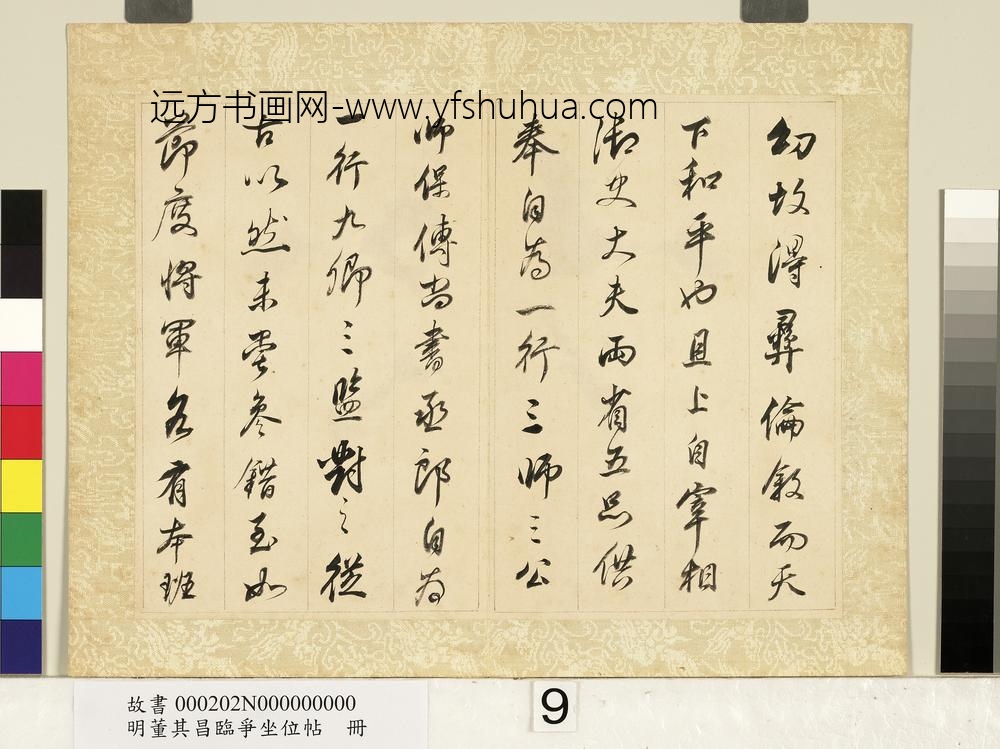 远方书画网-www.yfshuhua.com
幼故得彝倫敘而天
下和平也且上自宰相
御史大夫兩省五品供
奉自為一行三師三公
師保傅尚書丞郎自為
一行九卿三監對之從
古以然未嘗參錯至如
節度將軍各有本班
故書 000202N000000000
明董其昌臨爭坐位帖 冊
9